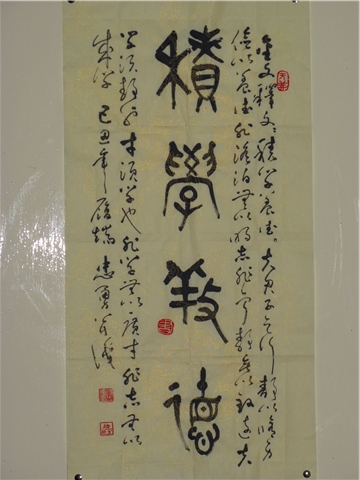 金文釋文：積学養德。夫君子之行静以修身
儉以養德非澹泊無以明志非寧静無以致遠夫
積學養德
学須静也才須学也非学無以廣才非志無以
成学 己丑年